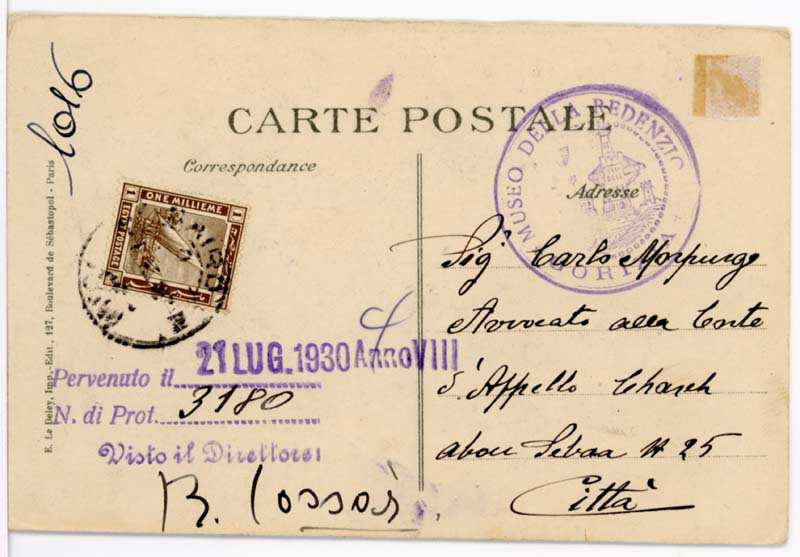 1016
CARTE POSTALE
Correspondance
Adresse
MUSEO DELLA REDENZIO
GORIZIA
ONE MILLIEME
1 1
EGYPT POSTAGE
Sig. Carlo Morpurgo
Avvocato alla Corte
d'Appello Chareh
abou Sebaa N 25
Città
21 LUG. 1930 Anno VIII
Pervenuto il
N. di Prot. 3180
Visto il Direttore:
R. Cossàr
E. Le Deley, Imp.-Edit., 127, Boulevard de Sébastopol - Paris